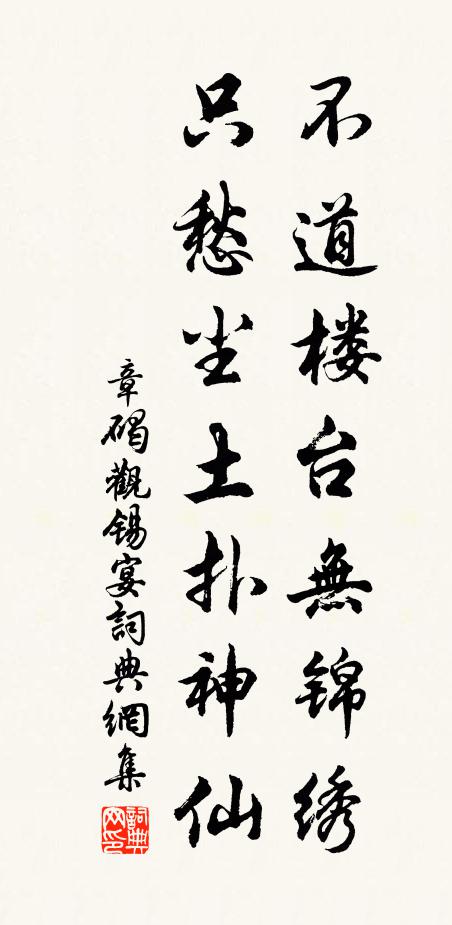 不道楼台無锦绣
只愁尘土扑神仙
章碣觀锡宴詞典網集
詞典網印